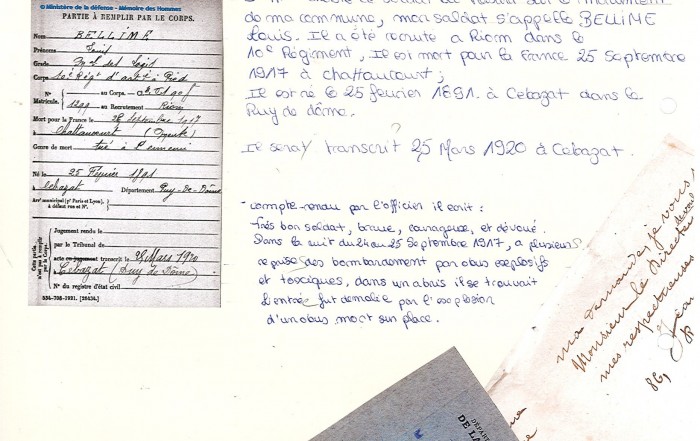 © Ministère de la défense - Mémoire des Hommes
PARTIE À REMPLIR PAR LE CORPS.
Nom BELLIME
Prénoms Louis
Grade
Corps 10e Régt d'artie à Pied
N° au Corps. — Cl.
Matricule. 1299 au Recrutement Riom
Mort pour la France le 25 septembre 1917
à Chattancourt (Meuse)
Genre de mort tué à l'ennemi
Né le 25 Février 1891
à Cébazat Département Puy-de-Dôme
Arrt municipal (pr Paris et Lyon),
à défaut rue et N°.
Cette partie
n'est pas à remplir
par le Corps.
Jugement rendu le
par le Tribunal de
acte ou jugement transcrit le 25 Mars 1920
à Cébazat (Puy de Dôme)
N° du registre d'état civil
534-708-1921. [26434.]
de ma commune, mon soldat s'appelle BELLIME
Louis. Il a été recruté a Riom dans le
10e Régiment, Il est mort pour la France 25 septembre
1917 à chattancourt;
Il est né le 25 février 1891. à Cebazat dans le
Puy de dôme.
Il seray transcrit 25 Mars 1920 à Cebazat.
- compte-rendu par l'officier il ecrit :
très bon soldat, brave, courageux, et dévoué.
Dans la nuit du 24 au 25 Septembre 1917, a plusieurs
reprise des bombardement par obus explosifs
et toxiques, dans un abris il se trouvait
l'entrée fut demolie par l'explosion
d'un obus, mort sur place.
ma demande, je vous
Monsieur le Directeu
mes respectueuses
86,
DÉPAR
DE LA